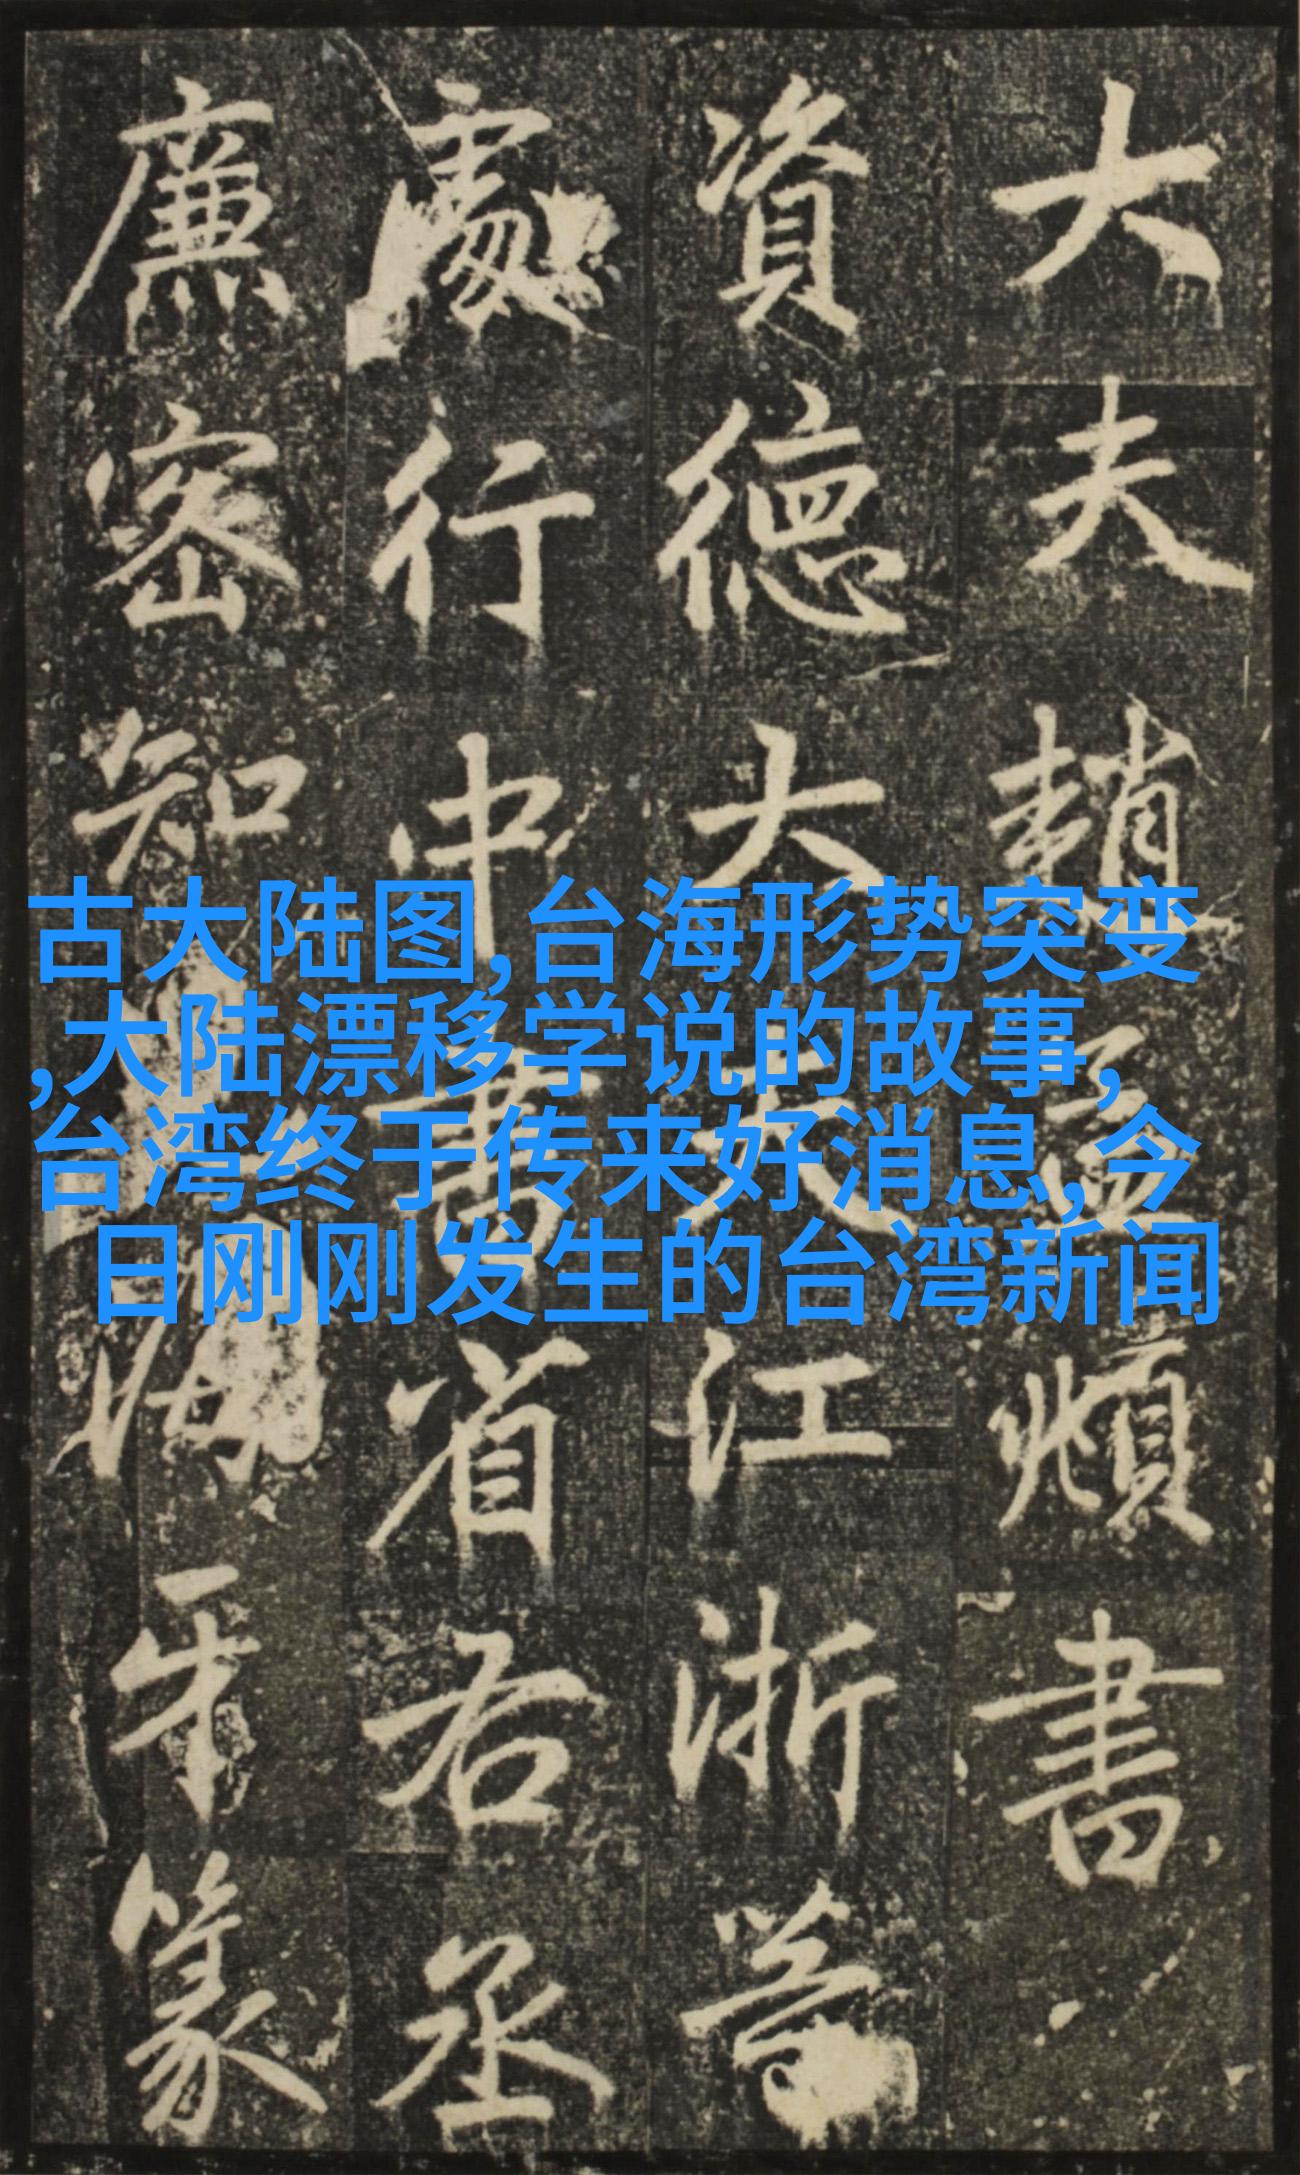 大夫趙孟頫書
資德大夫江浙等
處行中書省右丞
廉密知海牙篆
古大陆图,台海形势突变
,大陆漂移学说的故事,
台湾终于传来好消息,今
日刚刚发生的台湾新闻